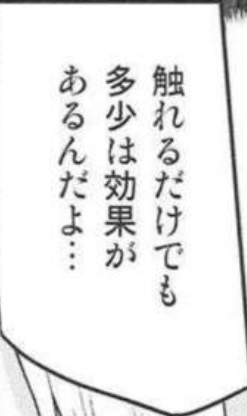 触れるだけでも
多少は効果が
あるんだよ…